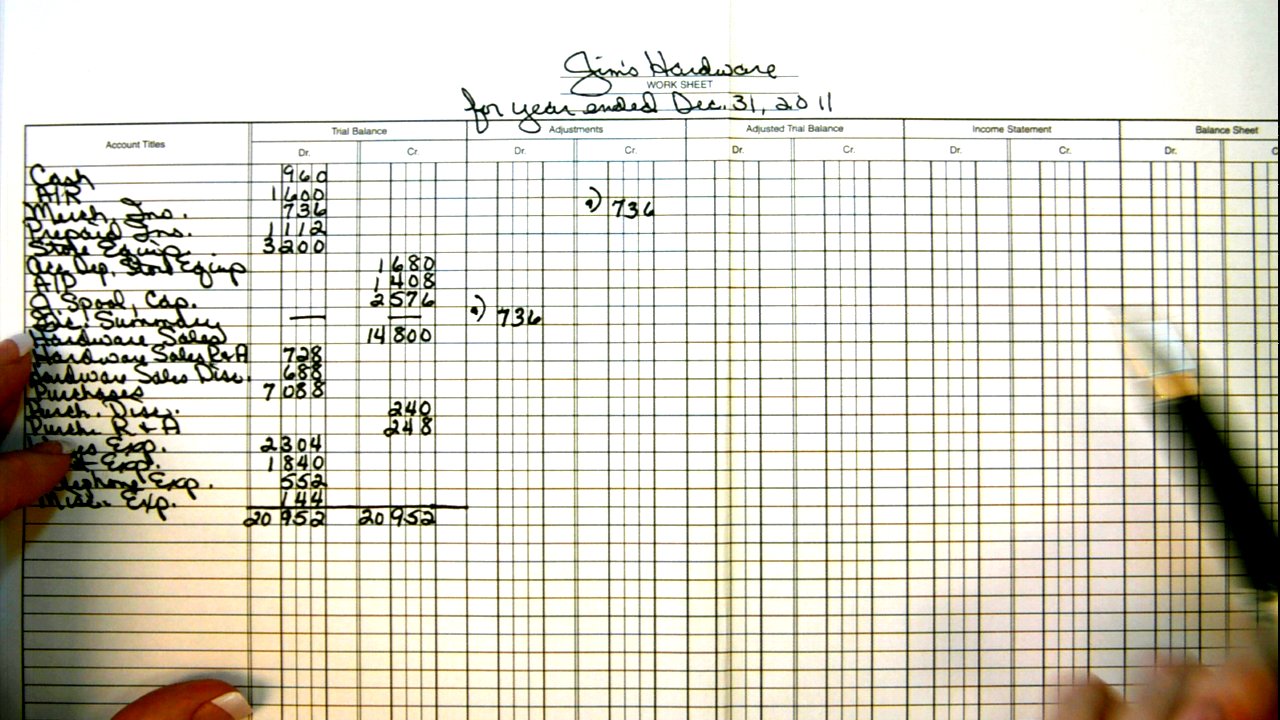 Jim's Hardware
WORK SHEET
for year ended Dec. 31, 2011
Account Titles Trial Balance Adjustments Adjusted Trial Balance Income Statement Balance Sheet
Dr. Cr. Dr. Cr. Dr. Cr. Dr. Cr. Dr. C
Cash 960
A/R 1600
Merch. Ins. 736 a) 736
Prepaid Ins. 1112
Store Equip. 3200
Acc. Dep. Store Equip 1680
A/P 1408
J. Spool, Cap. 2576
Inc. Summary — — a) 736
Hardware Sales 14800
Hardware Sales R+A 728
Hardware Sales Disc. 688
Purchases 7088
Purch. Disc. 240
Purch. R+A 248
Exp. 2304
Exp. 1840
Telephone Exp. 552
Misc. Exp. 144
20952 20952